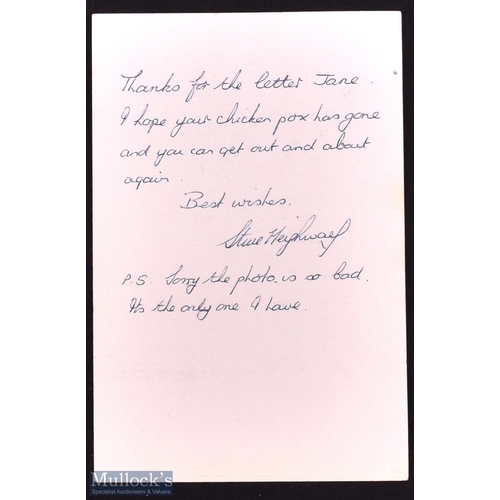 Thanks for the letter Jane.
I hope your chicken pox has gone
and you can get out and about
again.
Best wishes.
Steve Heighway
P.S. Sorry the photo is so bad.
Its the only one I have.
Mullock's
Specialist Auctioneers & Valuers